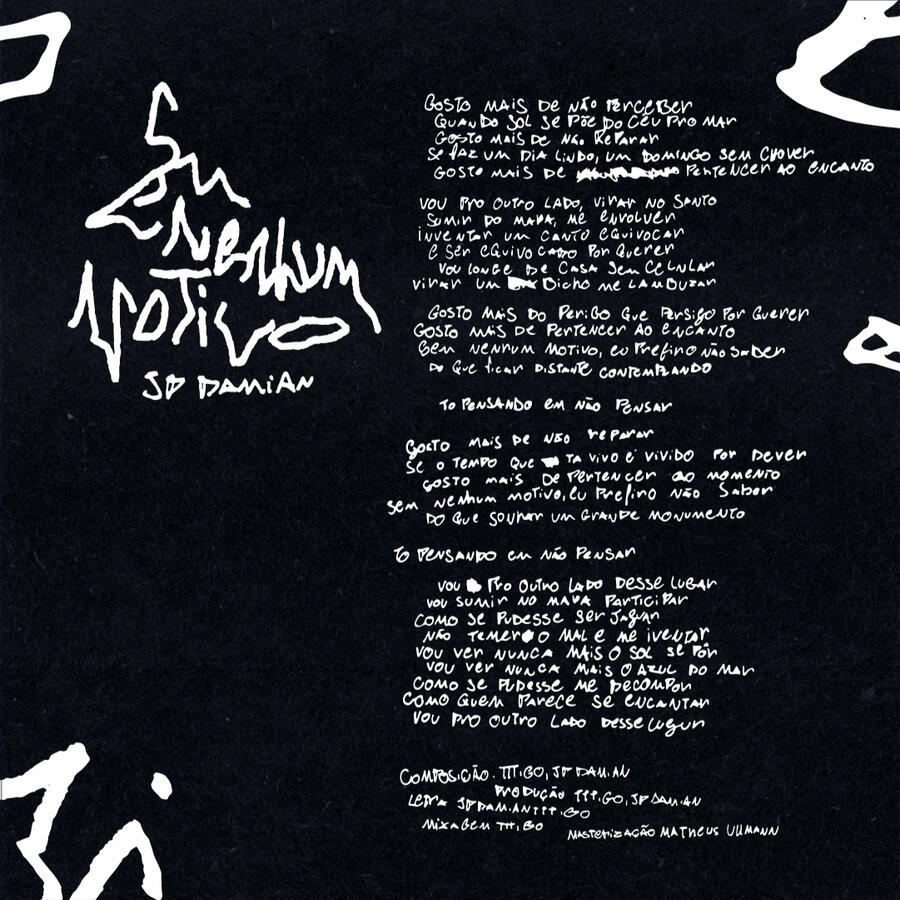 Sem
Nenhum
Motivo
JP DAMiAN
GOSTO MAIS DE NÃO PERCEBER
QUANDO SOL SE PÕE DO CÉU PRO MAR
GOSTO MAIS DE NÃO REPARAR
SE FAZ UM DIA LINDO, UM DOMINGO SEM CHOVER
GOSTO MAIS DE PERTENCER AO ENCANTO
VOU PRO OUTRO LADO, VIRAR NO SANTO
SUMIR DO MAPA, ME ENVOLVER
INVENTAR UM CANTO EQUIVOCAR
E SER EQUIVOCADO POR QUERER
VOU LONGE DE CASA SEM CELULAR
VIRAR UM BICHO ME LAMBUZAR
GOSTO MAIS DO PERIGO QUE PERSIGO POR QUERER
GOSTO MAIS DE PERTENCER AO ENCANTO
SEM NENHUM MOTIVO, EU PREFIRO NÃO SABER
DO QUE FICAR DISTANTE CONTEMPLANDO
TO PENSANDO EM NÃO PENSAR
GOSTO MAIS DE NÃO REPARAR
SE O TEMPO QUE TA VIVO É VIVIDO POR DEVER
GOSTO MAIS DE PERTENCER AO MOMENTO
SEM NENHUM MOTIVO, EU PREFIRO NÃO SABER
DO QUE SONHAR UM GRANDE MONUMENTO
TO PENSANDO EM NÃO PENSAR
VOU PRO OUTRO LADO DESSE LUGAR
VOU SUMIR NO MAPA PARTICIPAR
COMO SE PUDESSE SER JAGUAR
NÃO TEMER O MAL E ME IVENTAR
VOU VER NUNCA MAIS O SOL SE PÔR
VOU VER NUNCA MAIS O AZUL DO MAR
COMO SE PUDESSE ME DECOMPOR
COMO QUEM PARECE SE ENCANTAR
VOU PRO OUTRO LADO DESSE LUGAR
COMPOSIÇÃO. TTT.GO, JP DAMIAN
PRODUÇÃO TTT.GO, JP DAMIAN
LETRA JP DAMIAN TTT.GO
MIXAGEM TTT.GO
MASTERIZAÇÃO MATHEUS ULLMANN